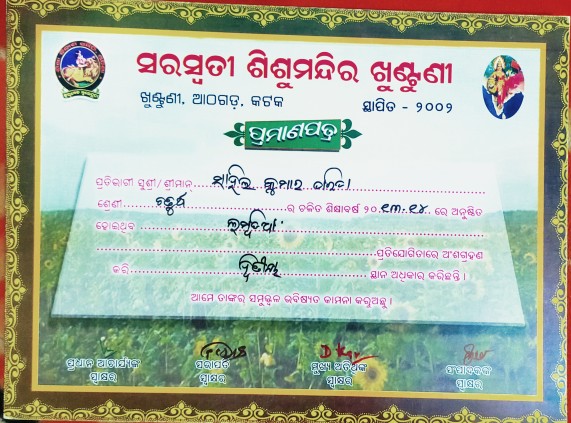 ସରସ୍ୱତୀ ଶିଶୁମନ୍ଦିର ଖୁଣ୍ଟୁଣୀ
ଖୁଣ୍ଟୁଣୀ, ଆଠଗଡ଼, କଟକ ସ୍ଥାପିତ - ୨୦୦୨
ପ୍ରମାଣପତ୍ର
ପ୍ରତିଯୋଗୀ ସୁଶ୍ରୀ/ଶ୍ରୀମାନ୍ କୁମାର
ଶ୍ରେଣୀ ଚତୁର୍ଥ ର ଚଳିତ ଶିକ୍ଷାବର୍ଷ ୨୦ ୧୩-୧୪ ରେ ଅନୁଷ୍ଠିତ
ହୋଇଥିବା ଲମ୍ବଡିଆଁ
ପ୍ରତିଯୋଗିତାରେ ଅଂଶଗ୍ରହଣ
କରି ଦ୍ୱିତୀୟ ସ୍ଥାନ ଅଧିକାର କରିଛନ୍ତି ।
ଆମେ ତାଙ୍କର ସମୁଜ୍ଜ୍ୱଳ ଭବିଷ୍ୟତ କାମନା କରୁଅଛୁ ।
ପ୍ରଧାନ ଆଚାର୍ଯ୍ୟଙ୍କ ସଭାପତି ମୁଖ୍ୟ ଅତିଥିଙ୍କ ସଂପାଦକଙ୍କ
ସ୍ୱାକ୍ଷର ସ୍ୱାକ୍ଷର ସ୍ୱାକ୍ଷର ସ୍ୱାକ୍ଷର